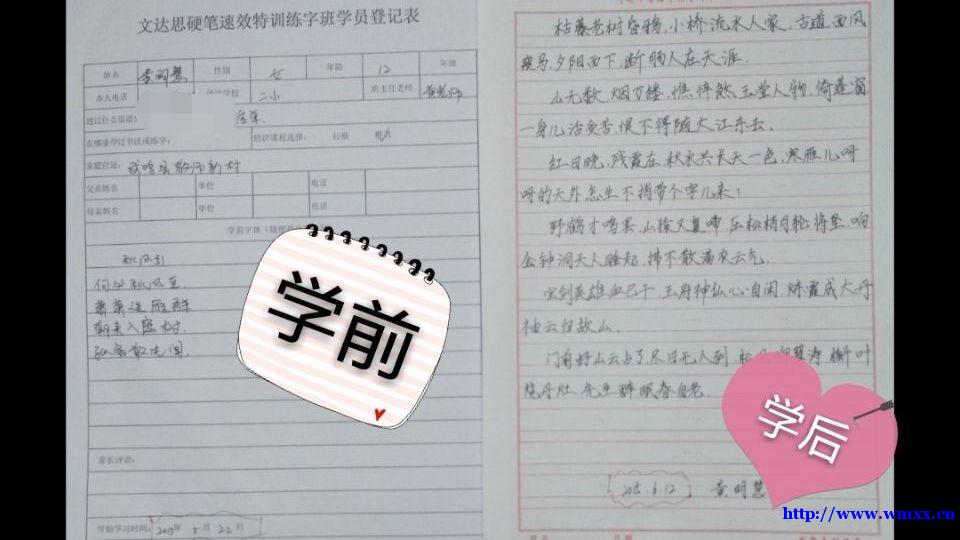 文达思硬笔速效特训练字班学员登记表
姓名 黄明慧 性别 女 年龄 12 年级
本人电话 二小 班主任老师
通过什么渠道
在哪里学过书法或练字: 培训课程选择: 行楷 楷书
家庭住址: 教师新村
父亲姓名 单位 电话
母亲姓名 单位 电话
学前字体
秋风引
何处秋风至
萧萧送雁群
朝来入庭树
孤客最先闻
学前
家长评语:
开始学习时间: 2015年 5月 22日
枯藤老树昏鸦,小桥流水人家,古道西风
瘦马,夕阳西下,断肠人在天涯.
山无数,烟万缕,憔悴煞,玉堂人物,倚篷窗
一身儿活受苦,恨不得随大江东去.
红日晚,残霞在,秋水共长天一色,寒雁儿呀
呀的天外,怎生不捎带个字儿来!
野鹤才鸣罢,山猿又复啼,压松梢月轮将坠,响
金钟洞天人睡起,拂不散满衣云气.
宝剑英雄血已干,玉府神仙心自闲,矫霞成大丹
袖云归故山.
门前好山云占了,尽日无人到,松风响翠涛,槲叶
烧丹灶,先生醉眠春自老.
学后
2015.6.12 黄明慧
http://www.wmxx.cn